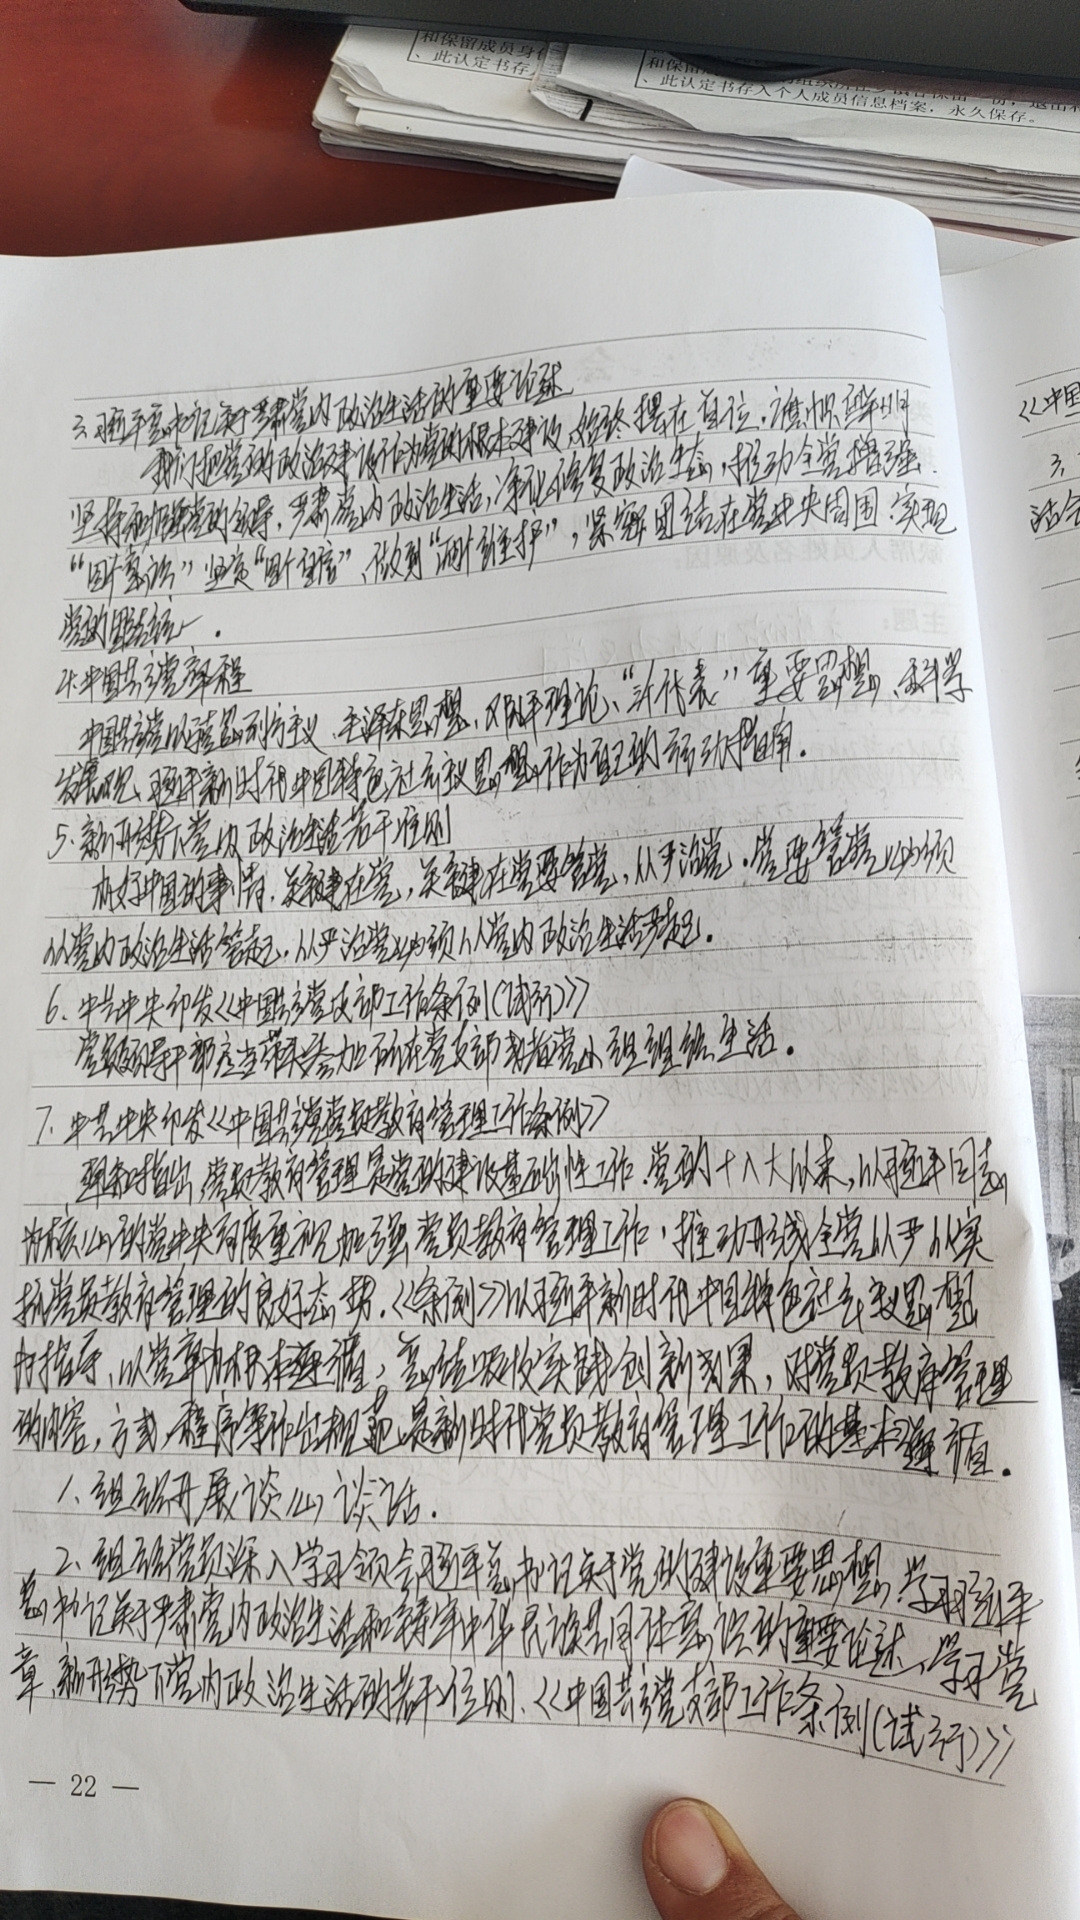 和保留成员身份
、此认定书存入
、此认定书存入个人成员信息档案，永久保存。
3、习近平总书记关于严肃党内政治生活的重要论述
我们把党的政治建设作为党的根本建设，始终摆在首位，旗帜鲜明
坚持和加强党的领导，严肃党内政治生活，净化修复政治生态，推动全党增强
“四个意识”坚定“四个自信”、做到“两个维护”，紧密团结在党中央周围，实现
党的团结统一。
4、中国共产党章程
中国共产党以马克思列宁主义、毛泽东思想、邓小平理论、“三个代表”重要思想、科学
发展观、习近平新时代中国特色社会主义思想作为自己的行动指南。
5、新形势下党内政治生活若干准则
办好中国的事情，关键在党，关键在党要管党，从严治党。党要管党必须
从党内政治生活管起，从严治党必须从党内政治生活严起。
6、中共中央印发《中国共产党支部工作条例（试行）》
党员领导干部应当带头参加所在党支部或者党小组组织生活。
7、中共中央印发《中国共产党党员教育管理工作条例》
通知指出，党员教育管理是党的建设基础性工作。党的十八大以来，以习近平同志
为核心的党中央高度重视加强党员教育管理工作，推动形成全党从严从实
抓党员教育管理的良好态势。《条例》以习近平新时代中国特色社会主义思想
为指导，以党章为根本遵循，总结吸收实践创新成果，对党员教育管理
的内容，方式，程序等作出规范，是新时代党员教育管理工作的基本遵循。
1、组织开展谈心谈话。
2、组织党员深入学习领会习近平总书记关于党的建设重要思想，学习习近平
总书记关于严肃党内政治生活和铸牢中华民族共同体意识的重要论述、学习党
章、新形势下党内政治生活的若干准则、《中国共产党支部工作条例（试行）》
— 22 —
《中国
3、